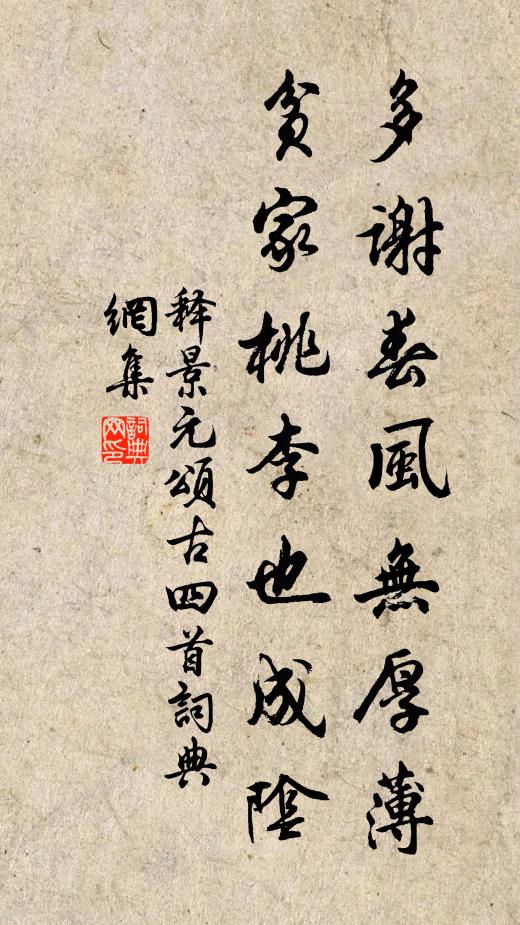 多謝春風無厚薄
貧家桃李也成陰
释景元頌古四首詞典
網集
詞典網印